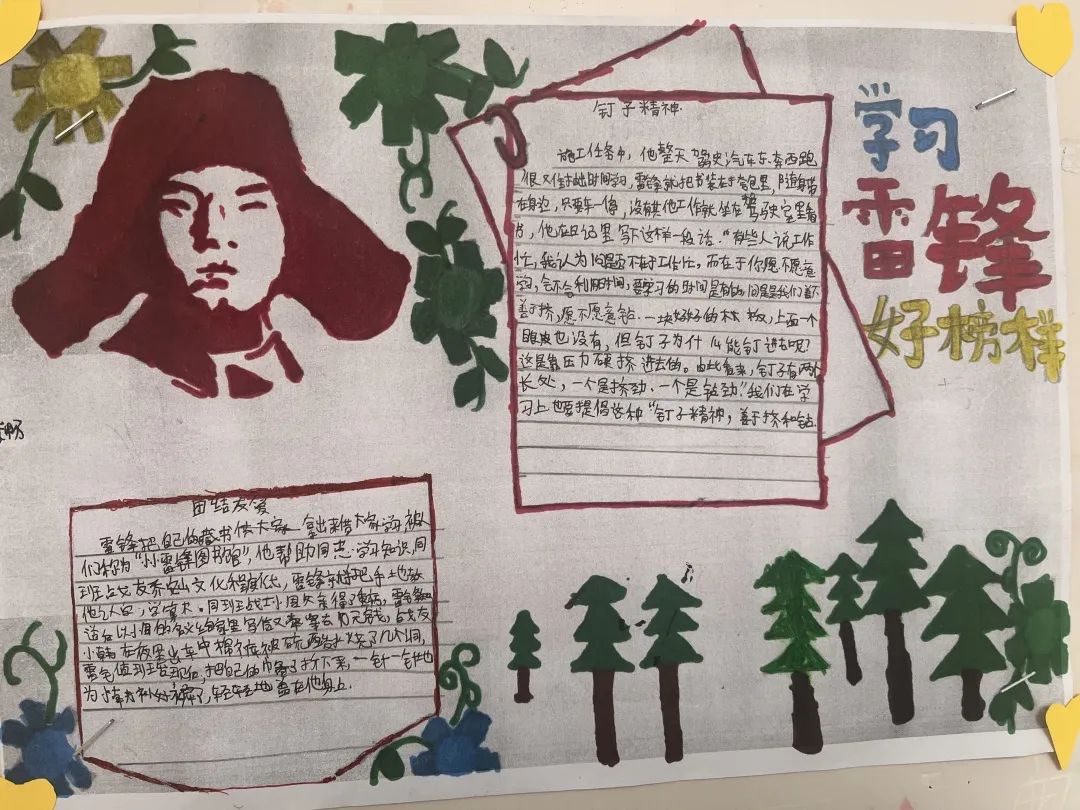 学习
雷锋
好榜样
钉子精神
施工任务中，他整天驾史汽车东奔西跑
很又任抽出时间学习，雷锋就把书装在手包里，随身带
在身边，只要车一停，没有其他工作就坐在驾驶室里看
书，他在日记里写下这样一段话．“有些人说工作
忙，我认为问题不在于工作忙，而在于你愿不愿意
学习，会不会利用时间，要学习的时间是有的，问题是我们善不
善于挤，愿不愿意钻．一块好好的木板，上面一个
眼也没有，但钉子为什么能钉进去呢？
这是靠压力硬挤进去的。由此看来，钉子有两个
长处，一个是挤劲．一个是钻劲．”我们在学
习上也要提倡这种“钉子精神，善于挤和钻．
畅
团结友爱
雷锋把自己的藏书供大家 拿出来借大家 被
们称为“小雷锋图书馆”，他帮助同志学习知识，同
班战友乔安山文化程度低，雷锋手把手地教
他认字，学算术。同班战士小周父亲得了重病，雷锋
以小周的名义给家里写信又寄去10元钱，战友
小韩在夜里出车中棉裤被硫酸水烧了几个洞，
雷锋值班后，把自己的帽子拆下来，一针一针地
为小韩补好裤子，轻轻地盖在他身上．